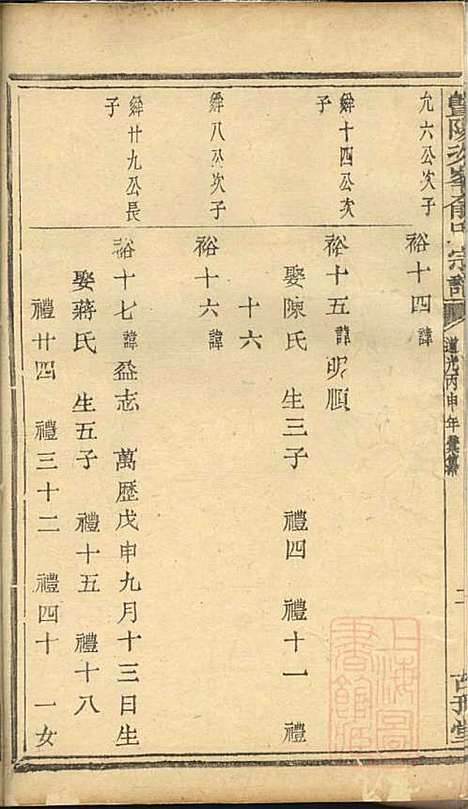 暨陽次峯俞氏宗譜 道光丙申年彙纂
允六公次子
裕十四諱
錊十四公次
子
裕十五諱明順
娶陳氏 生三子 禮四 禮十一 禮
十六
錊八公次子
裕十六諱
錊廿九公長
子
裕十七諱益志 萬歷戊申九月十三日生
娶蔣氏 生五子 禮十五 禮十八
禮廿四 禮三十二 禮四十 一女
上海圖書館藏